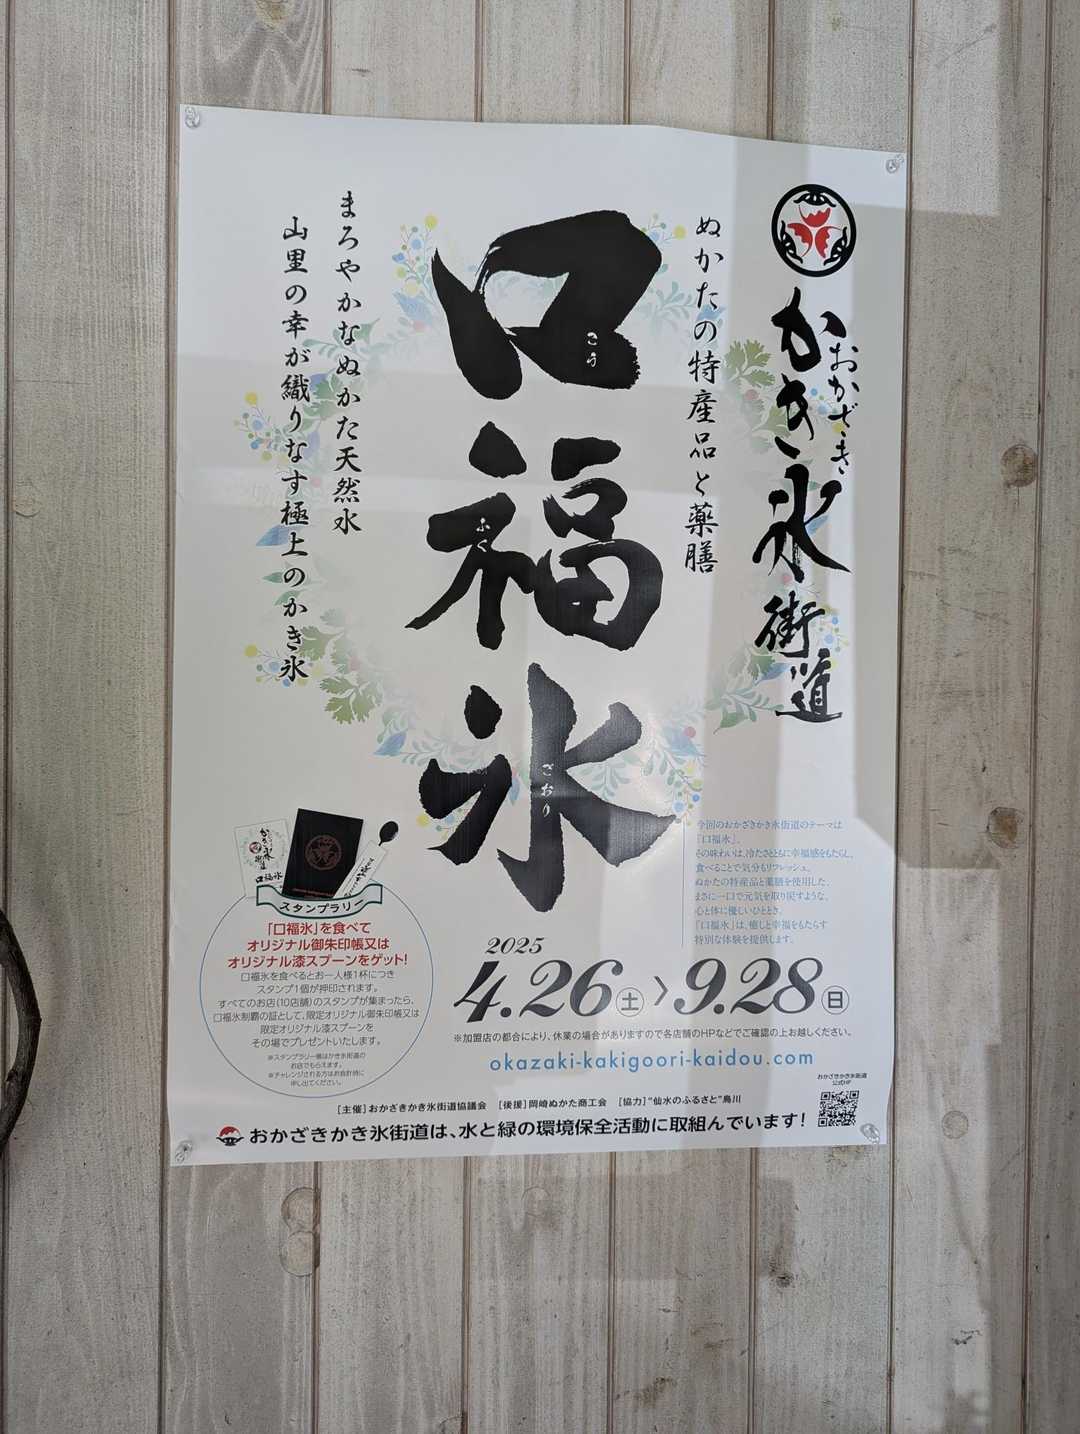 おかざき
かき氷街道
ぬかたの特産品と薬膳
口福氷
こう
ふく
ごおり
まろやかなぬかた天然水
山里の幸が織りなす極上のかき氷
今回のおかざきかき氷街道のテーマは
「口福氷」。
その味わいは、冷たさとともに幸福感をもたらし、
食べることで気分もリフレッシュ。
ぬかたの特産品と薬膳を使用した、
まさに一口で元気を取り戻すような、
心と体に優しいひととき。
「口福氷」は、癒しと幸福をもたらす
特別な体験を提供します。
かき氷街道
口福氷
スタンプラリー
「口福氷」を食べて
オリジナル御朱印帳又は
オリジナル漆スプーンをゲット!
口福氷を食べるとお一人様1杯につき
スタンプ1個が押印されます。
すべてのお店(10店舗)のスタンプが集まったら、
口福氷制覇の証として、限定オリジナル御朱印帳又は
限定オリジナル漆スプーンを
その場でプレゼントいたします。
※スタンプラリー帳はかき氷街道の
お店でもらえます。
※チャレンジされる方はお会計時に
申し出てください。
2025
4.26(土)>9.28(日)
※加盟店の都合により、休業の場合がありますので各店舗のHPなどでご確認の上お越しください。
okazaki-kakigoori-kaidou.com
おかざきかき氷街道
公式HP
[主催]おかざきかき氷街道協議会 [後援]岡崎ぬかた商工会 [協力]"仙水のふるさと"鳥川
おかざきかき氷街道は、水と緑の環境保全活動に取組んでいます!